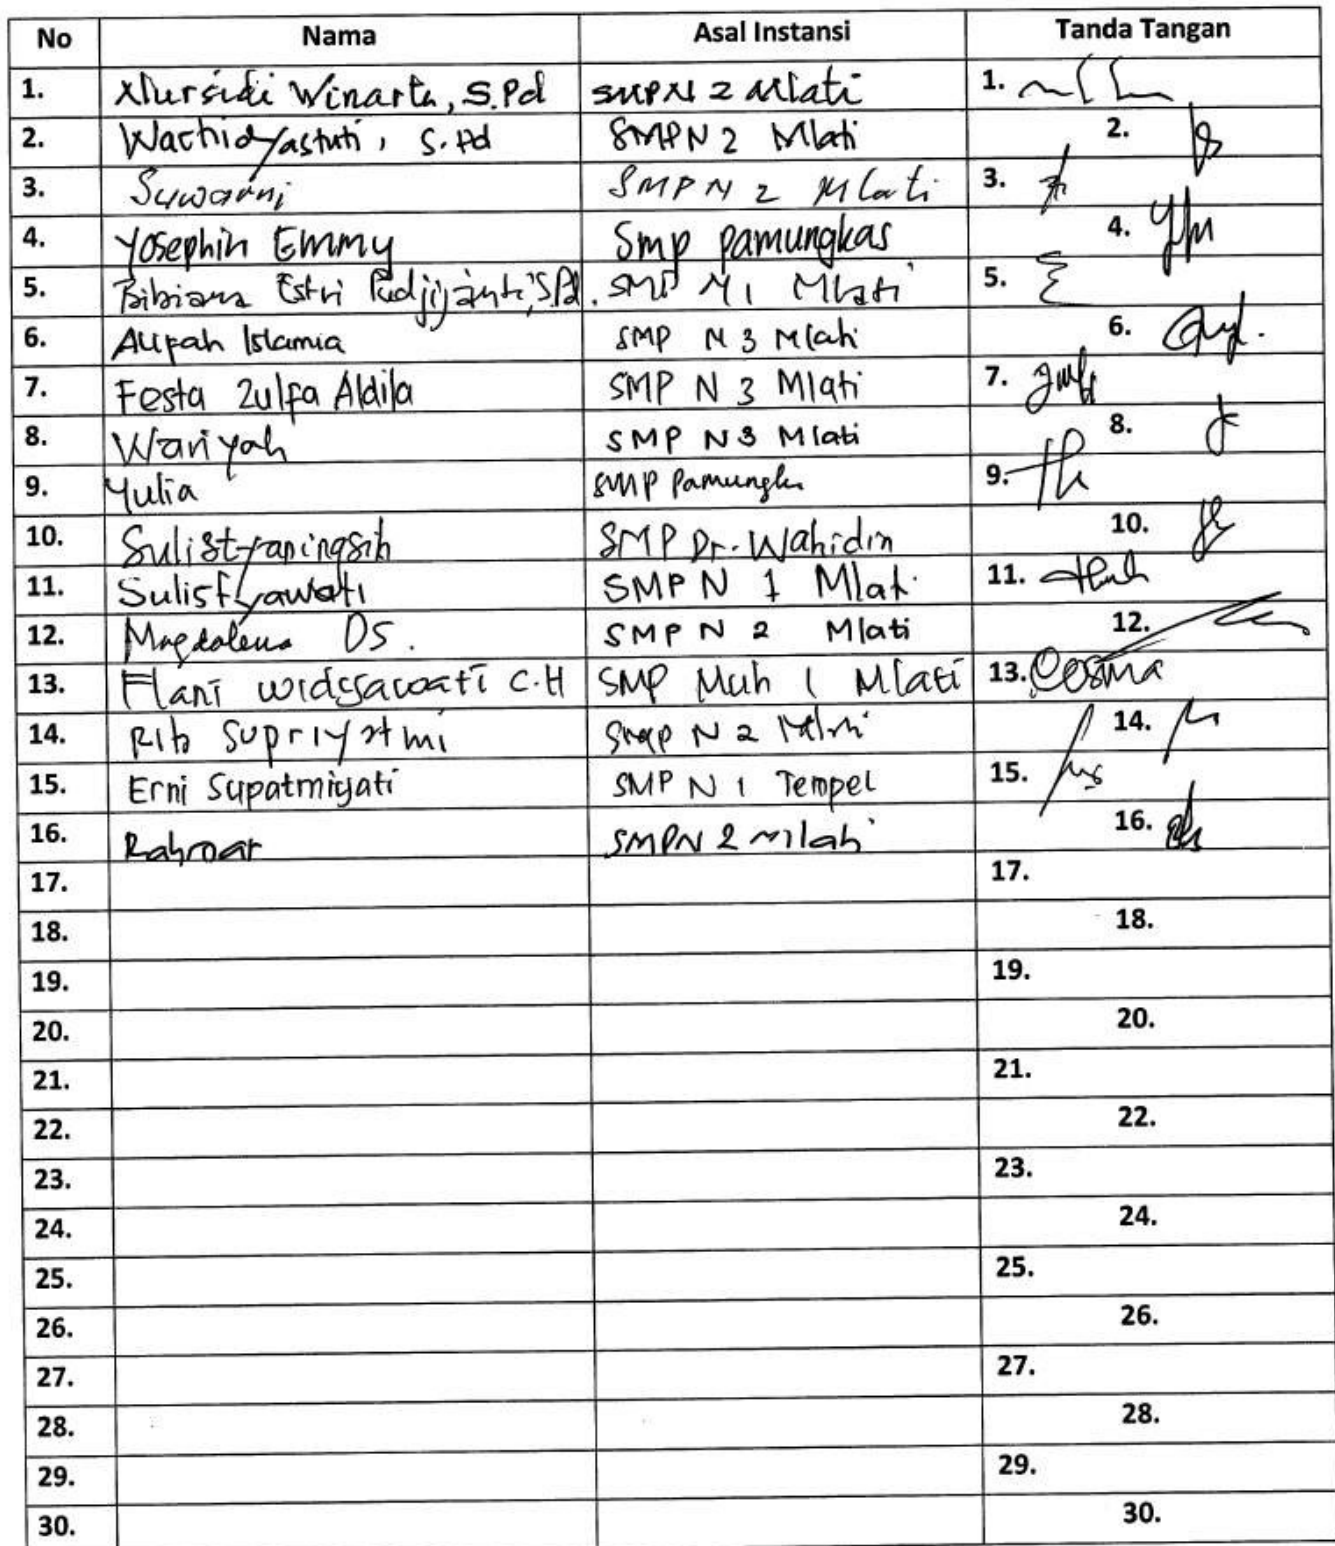 No Nama Asal Instansi Tanda Tangan
1. Nursidi Winarta, S.Pd SMPN 2 Mlati 1.
2. Wachidyastuti, S.Pd SMPN 2 Mlati 2.
3. Suwarni SMPN 2 Mlati 3.
4. Yosephin Emmy Smp pamungkas 4.
5. Bibiana Estri Pudjijanti, S.Pd. SMP N 1 Mlati 5.
6. Alifah Islamia SMP N 3 Mlati 6.
7. Festa Zulfa Aldila SMP N 3 Mlati 7.
8. Wariyah SMP N3 Mlati 8.
9. Yulia SMP Pamungks 9.
10. Sulistyaningsih SMP Dr. Wahidin 10.
11. Sulistyawati SMP N 1 Mlati 11.
12. Magdalena DS. SMP N 2 Mlati 12.
13. Hani widyawati C.H SMP Muh 1 Mlati 13.
14. Supriyatmi SMP N 2 Mlati 14.
15. Erni Supatmiyati SMP N 1 Tempel 15.
16. SMPN 2 Mlati 16.
17. 17.
18. 18.
19. 19.
20. 20.
21. 21.
22. 22.
23. 23.
24. 24.
25. 25.
26. 26.
27. 27.
28. 28.
29. 29.
30. 30.